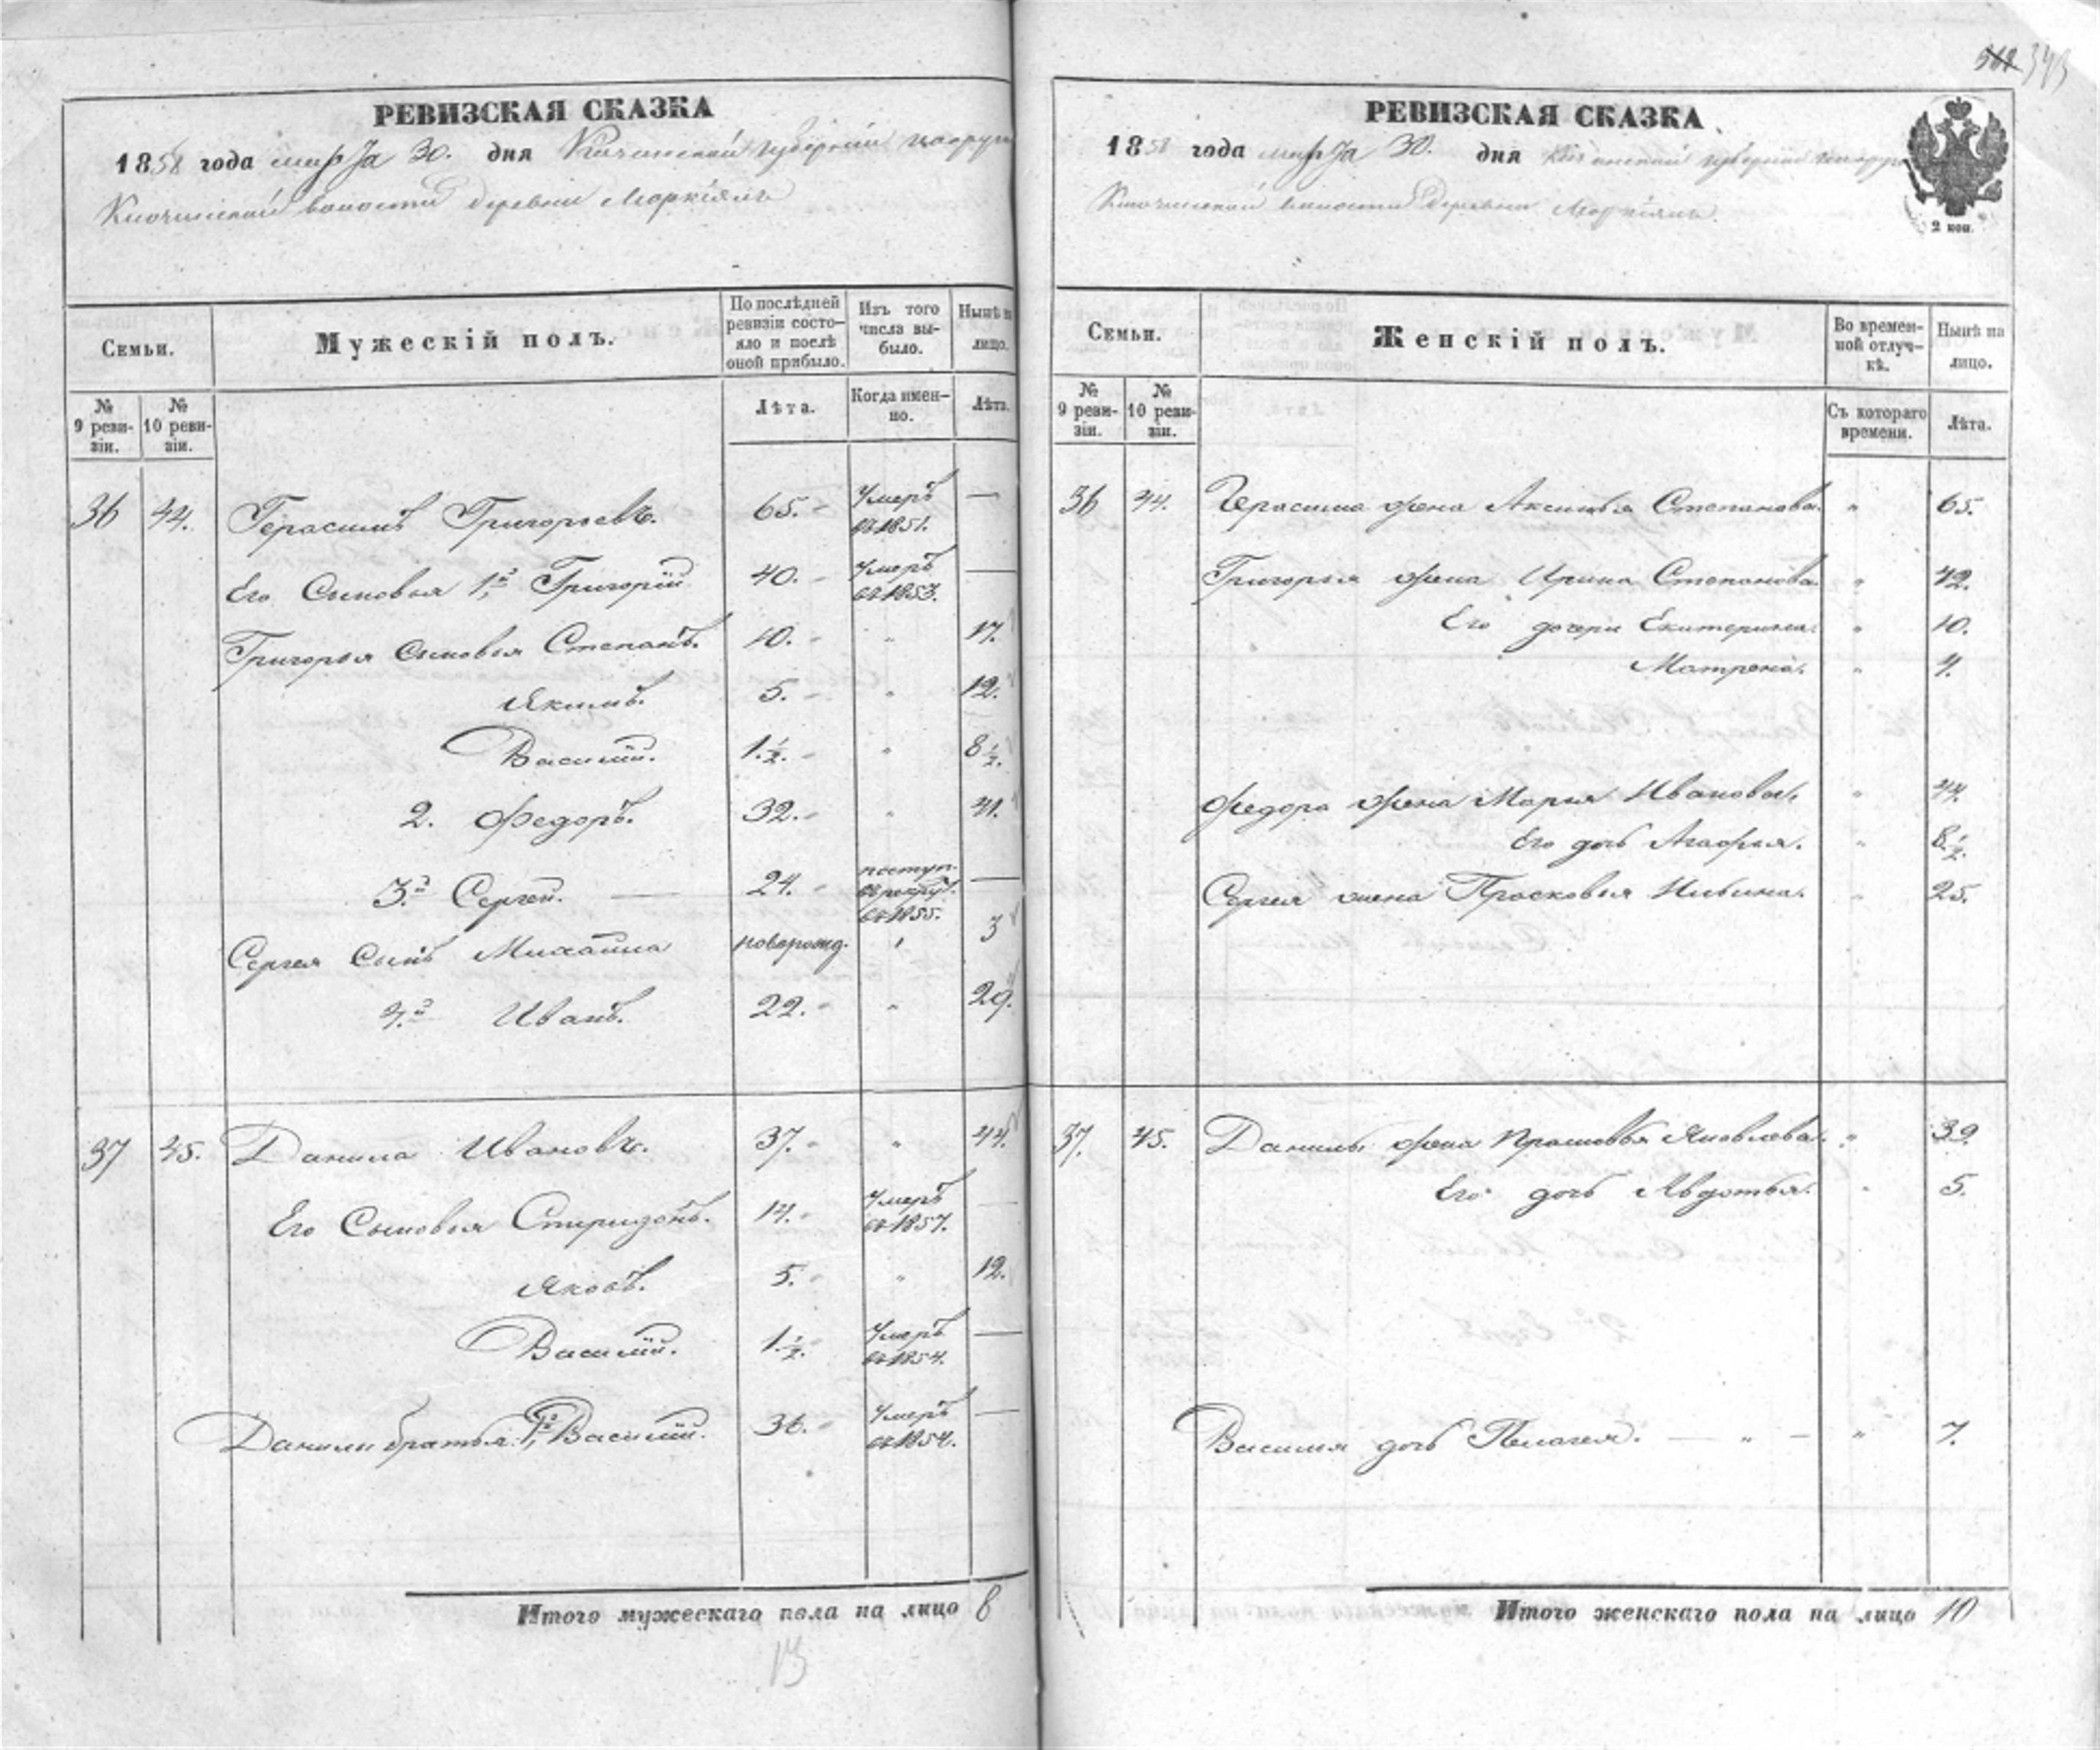 РЕВИЗСКАЯ СКАЗКА
1858 года марта 30. дня губернии
волости деревни
Семьи.
Мужескій полъ.
По послѣдней ревизіи состо-
яло и послѣ
оной прибыло.
Изъ того
числа вы-
было.
Нынѣ на
лицо.
№
9 реви-
зіи.
№
10 реви-
зіи.
Лѣта.
Когда имен-
но.
Лѣта.
36 44. Герасимъ Григорьевъ. 65. Умеръ въ 1851. —
Его Сыновья 1й Григорій 40. Умеръ въ 1853. —
Григорья сыновья Степанъ. 10. " 17.
Якимъ. 5. " 12.
Василій. 1 1/2. " 8 1/2.
2. Федоръ. 32. " 41.
3й Сергей. — 24. поступ. въ рекру. въ 1855. —
Сергея сынъ Михайла новорожд. " 3
4й Иванъ. 22. " 29.
37 45. Данила Ивановъ. 37. " 44.
Его Сыновья Спиридонъ. 14. Умеръ въ 1857. —
Яковъ. 5. " 12.
Василій. 1 1/2. Умеръ въ 1854. —
Данилы братья 1й Василій. 36. Умеръ въ 1854. —
Итого мужескаго пола на лицо 8
13
343
РЕВИЗСКАЯ СКАЗКА
1858 года марта 30. дня губернии
волости деревни
2 коп.
Семьи.
Женскій полъ.
Во времен-
ной отлуч-
кѣ.
Нынѣ на
лицо.
№
9 реви-
зіи.
№
10 реви-
зіи.
Съ котораго
времени.
Лѣта.
36 44. Герасима жена Аксинья Степанова. " 65.
Григорья жена Ирина Степанова. " 42.
Его дочери Екатерина. " 10.
Матрена. " 4.
Федора жена Марья Иванова. " 44.
Его дочь Агафья. " 8 1/2.
Сергея жена Прасковья " 25.
37. 45. Данилы жена Яковлева. " 39.
Его дочь Авдотья. " 5.
Василия дочь Пелагея. — " — " 7.
Итого женскаго пола на лицо 10